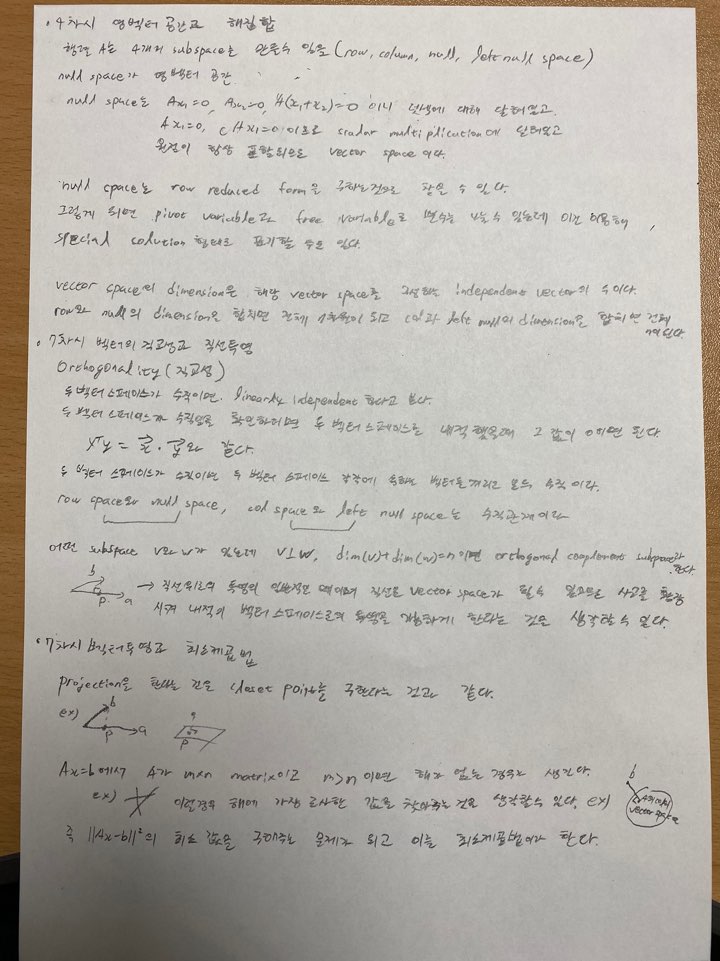 · 4차시 영벡터 공간과 해집합
행렬 A는 4개의 subspace를 만들수 있음 (row, column, null, left null space)
null space가 영벡터 공간.
null space는 Ax₁=0, Ax₂=0, A(x₁+x₂)=0 이니 덧셈에 대해 닫혀있고.
Ax₁=0, cAx₁=0 이므로 scalar multiplication에 닫혀있고
원점이 항상 포함되므로 vector space 이다.
null space는 row reduced form을 구하는것으로 찾을 수 있다.
그렇게 되면 pivot variable과 free variable로 변수를 나눌수 있는데 이걸 이용해,
special solution 형태로 표기할 수도 있다.
vector space의 dimension은 해당 vector space를 구성하는 independent vector의 수이다.
row와 null의 dimension을 합치면 전체 n차원이 되고 col과 left null의 dimension을 합치면 전체
된다.
· 7차시 벡터의 직교성과 직선투영
Orthogonality (직교성)
두 벡터스페이스가 수직이면. linearly independent 하다고 본다.
두 벡터스페이스가 수직임을 확인하려면 두 벡터스페이스를 내적했을때 그 값이 0이면 된다
xᵀy = x⃗ · y⃗와 같다.
두 벡터 스페이스가 수직이면 두 벡터 스페이스 각각에 속하는 벡터들끼리도 모두 수직이다.
row space와 null space, col space와 left null space는 수직관계이다
어떤 subspace v와 w가 있는데 v⊥w, dim(v)+dim(w)=n 이면 orthogonal complement subspace라
한다.
b
p a → 직선위로의 투영의 일반적인 예이며 직선도 vector space가 될수 있으므로 사고를 확장
시켜 내적이 벡터스페이스로의 투영을 가능하게 한다는 것을 생각할 수 있다.
· 7차시 벡터투영과 최소제곱법
projection을 한다는 것은 closet point를 구한다는 것과 같다.
ex) b p a
p
Ax=b에서 A가 m×n matrix이고 m>n 이면 해가 없는 경우가 생긴다.
ex) 이럴경우 해에 가장 근사한 값을 찾아주는 것을 생각할수 있다. ex) b
vector space
즉 ||Ax-b||²의 최소값을 구해주는 문제가 되고 이를 최소제곱법이라 한다.